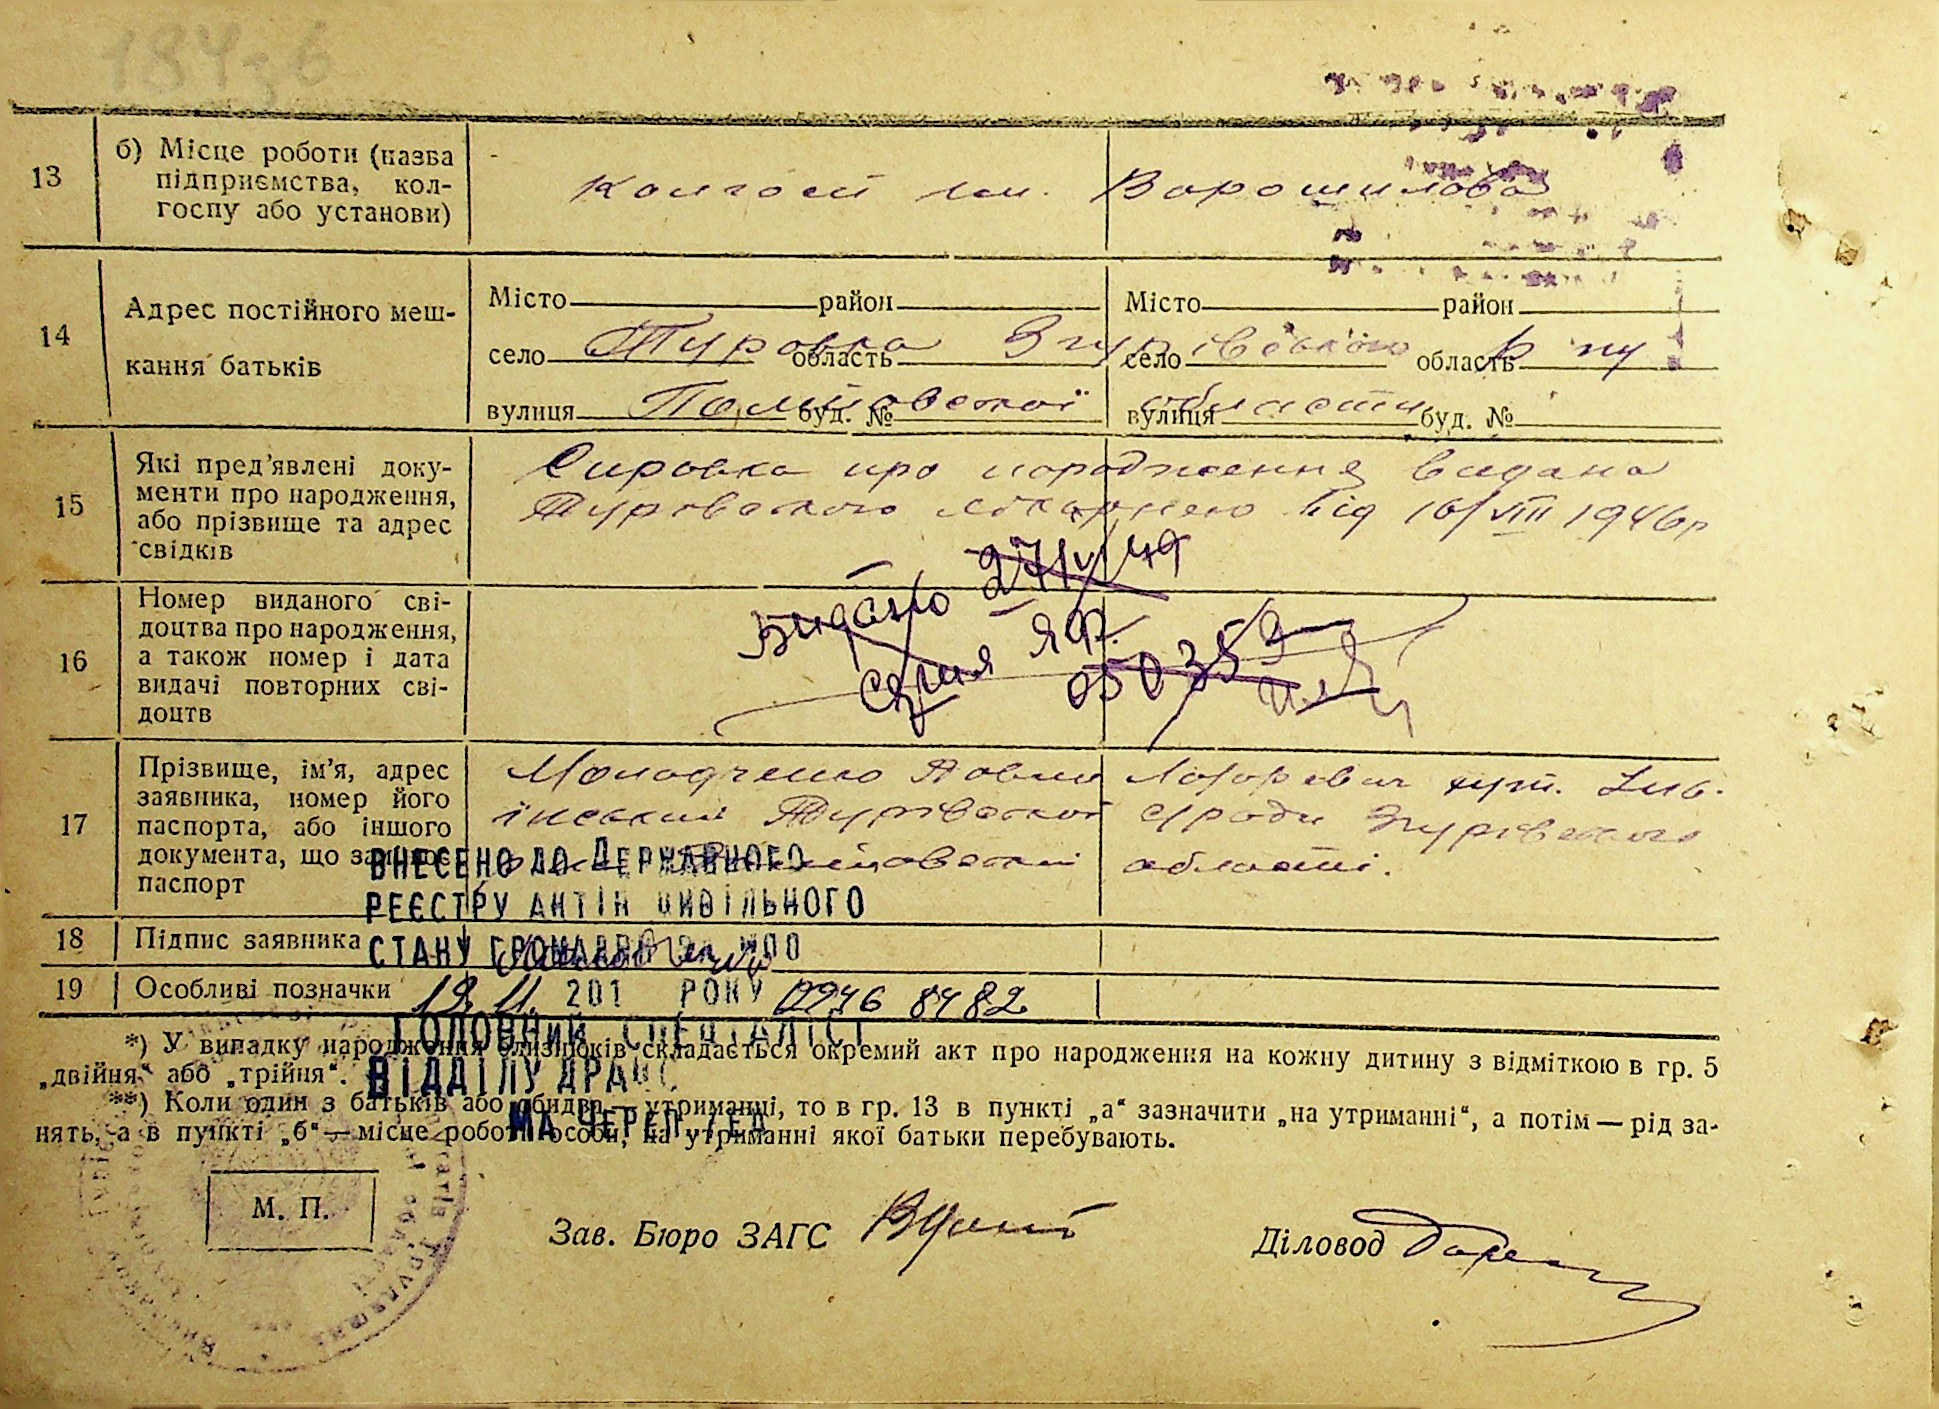 184зб
13
б) Місце роботи (назва
підприємства, кол-
госпу або установи)
Колгосп ім. Ворошилова
14
Адрес постійного меш-
кання батьків
Місто район
село Туровка область Згурівського р-ну
вулиця Полтавської буд. № області
Місто район
село область
вулиця буд. №
15
Які пред'явлені доку-
менти про народження,
або прізвище та адрес
свідків
Справка про народження видана
Турівською лікарнею від 16/VIII 1946р
16
Номер виданого сві-
доцтва про народження,
а також номер і дата
видачі повторних сві-
доцтв
Видано 27/V/49
серия ЯФ.
050353
17
Прізвище, ім'я, адрес
заявника, номер його
паспорта, або іншого
документа, що
паспорт
Молодченко Павло Лазаревич хут.
Турівської с/ради Згурівского
області.
18
Підпис заявника
19
Особливі позначки
ВНЕСЕНО ДО ДЕРЖАВНОГО
РЕЄСТРУ АКТІВ ЦИВІЛЬНОГО
СТАНУ ГРОМАДЯН ЗА №00
19.11. 201 РОКУ 0946 8482
ГОЛОВНИЙ СПЕЦІАЛІСТ
ВІДДІЛУ ДРАЦС
*) У випадку народження близнюків складається окремий акт про народження на кожну дитину з відміткою в гр. 5
„двійня“ або „трійня“.
**) Коли один з батьків або обидва — утриманці, то в гр. 13 в пункті „а“ зазначити „на утриманні“, а потім — рід за-
нять, а в пункті „б“ — місце роботи особи, на утриманні якої батьки перебувають.
М. П.
Зав. Бюро ЗАГС
Діловод